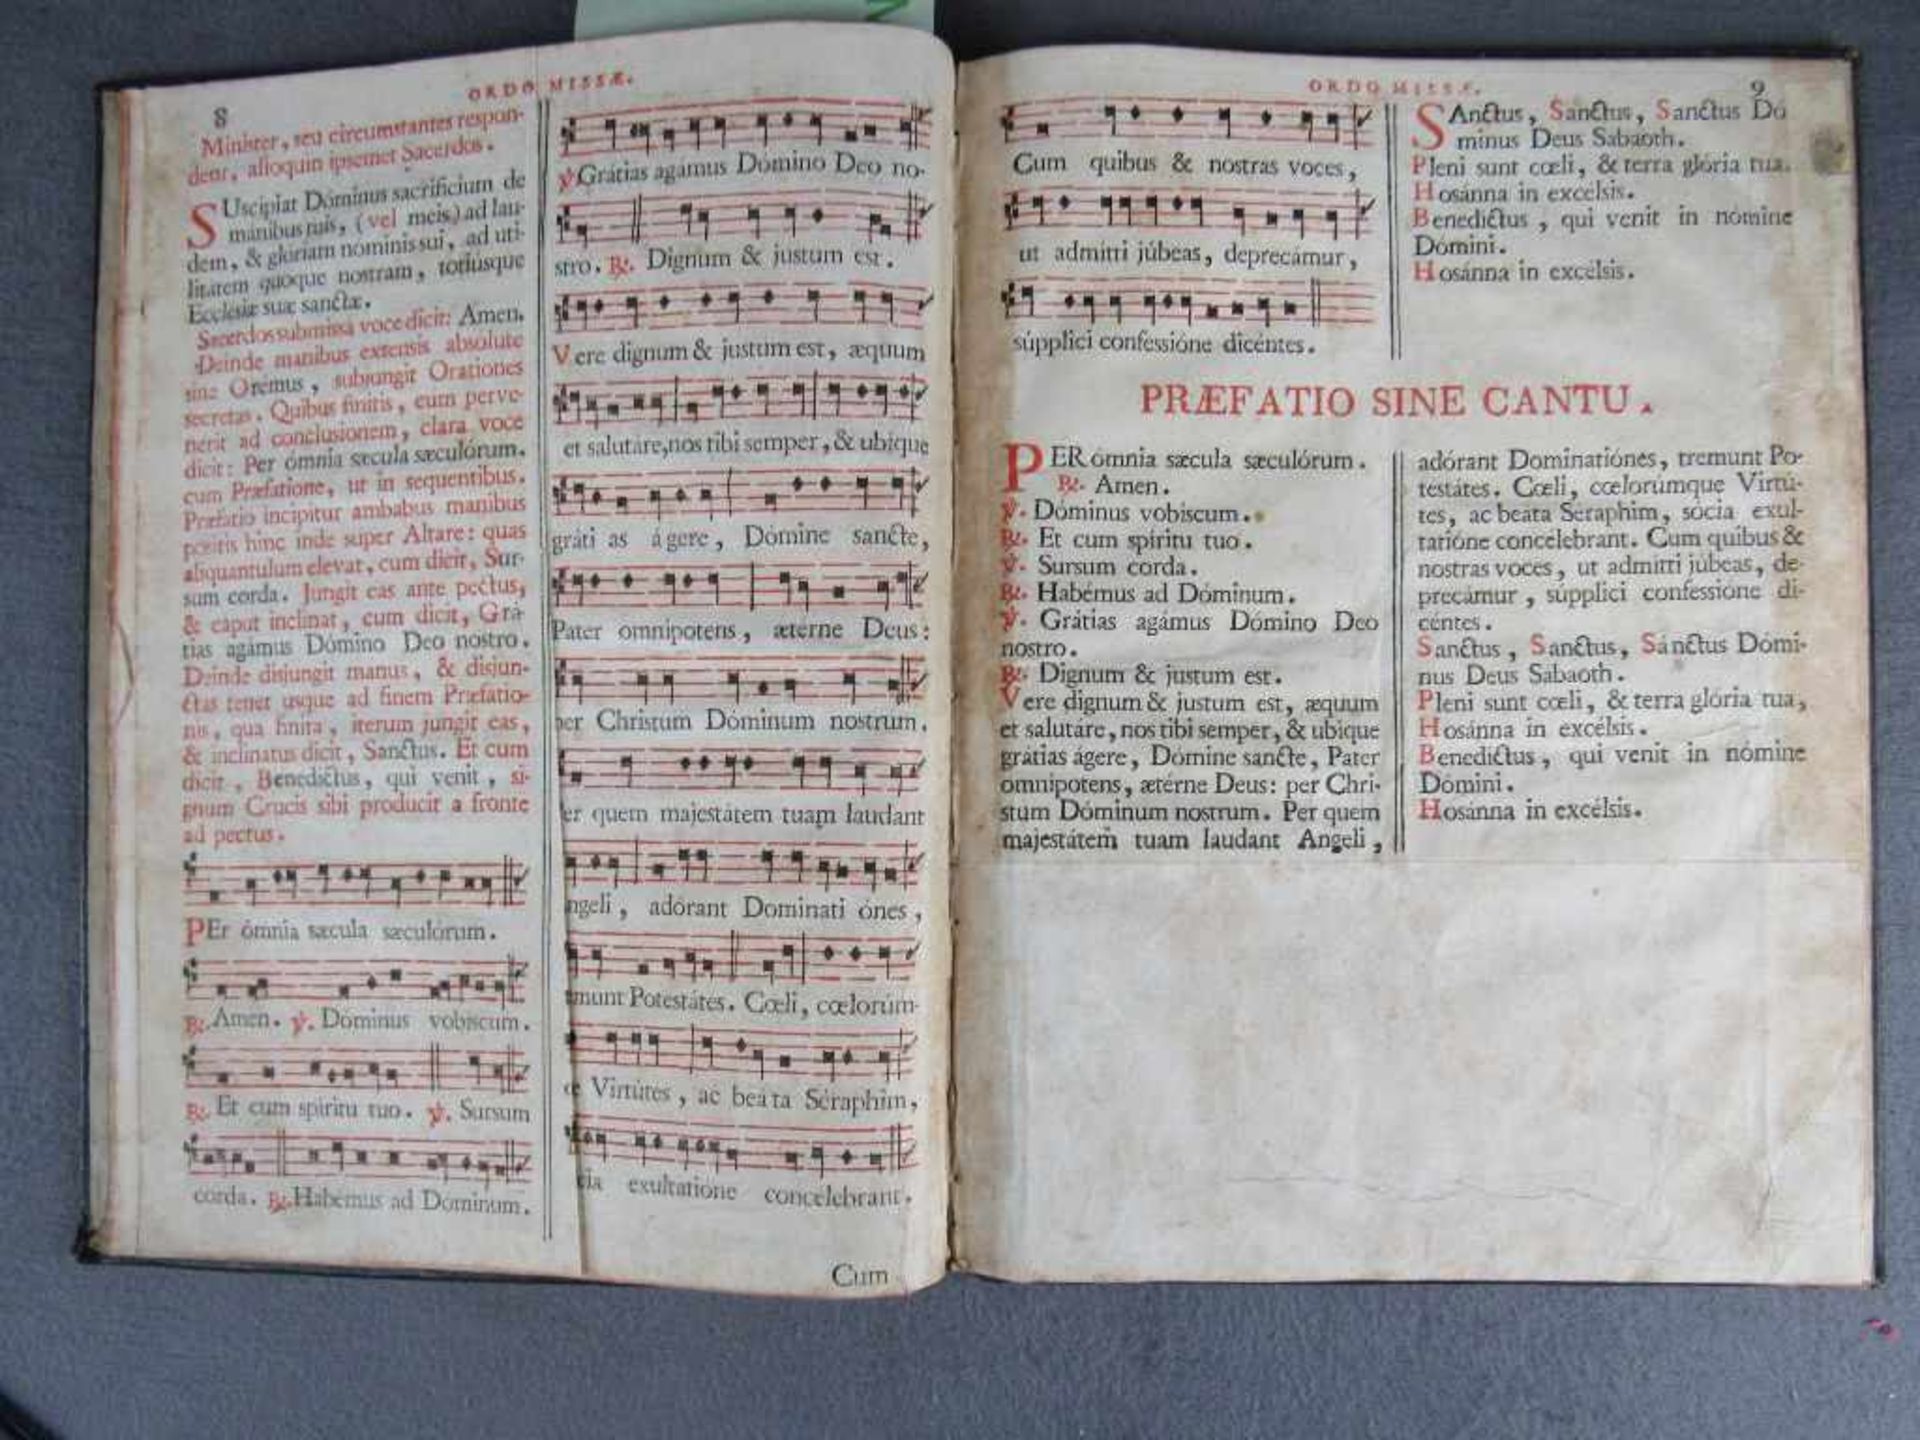 ORDO MISSÆ.
8
Minister, seu circumstantes respon-
dent, alioquin ipsemet Sacerdos.
SUscipiat Dóminus sacrificium de
manibus tuis, (vel meis) ad lau-
dem, & gloriam nominis sui, ad uti-
litatem quoque nostram, totiúsque
Ecclesiæ suæ sanctæ.
Sacerdos submissa voce dicit: Amen.
Deinde manibus extensis absolute
sine Orémus, subjungit Orationes
secretas. Quibus finitis, cum perve-
nerit ad conclusionem, clara voce
dicit: Per ómnia sæcula sæculórum.
cum Præfatione, ut in sequentibus.
Præfatio incipitur ambabus manibus
positis hinc inde super Altare: quas
aliquantulum elevat, cum dicit, Sur-
sum corda. Jungit eas ante pectus,
& caput inclinat, cum dicit, Grá-
tias agámus Dómino Deo nostro.
Deinde disjungit manus, & disjun-
ctas tenet usque ad finem Præfatio-
nis, qua finita, iterum jungit eas,
& inclinatus dicit, Sanctus. Et cum
dicit, Benedíctus, qui venit, si-
gnum Crucis sibi producit a fronte
ad pectus.
PEr ómnia sæcula sæculórum.
℟. Amen. ℣. Dominus vobiscum.
℟. Et cum spíritu tuo. ℣. Sursum
corda. ℟. Habémus ad Dóminum.
℣ Grátias agamus Dómino Deo no-
stro. ℟. Dignum & justum est.
Vere dignum & justum est, æquum
et salutáre, nos tibi semper, & ubíque
gráti as á gere, Dómine sancte,
Pater omnipotens, æterne Deus:
per Christum Dóminum nostrum.
er quem majestátem tuam laudant
ngeli, adórant Dominati ónes,
munt Potestátes. Cœli, cœlorúm-
e Virtútes, ac beáta Séraphim,
cia exultatióne concélebrant.
Cum
ORDO MISSÆ.
9
Cum quibus & nostras voces,
ut admítti júbeas, deprecámur,
súpplici confessióne dicéntes.
SAnctus, Sanctus, Sanctus Dó
minus Deus Sabaoth.
Pleni sunt cœli, & terra glória tua.
Hosánna in excelsis.
Benedíctus, qui venit in nómine
Domini.
Hosánna in excélsis.
PRÆFATIO SINE CANTU.
PER ómnia sæcula sæculórum.
℟. Amen.
℣. Dóminus vobiscum.
℟. Et cum spiritu tuo.
℣. Sursum corda.
℟. Habémus ad Dóminum.
℣. Grátias agámus Dómino Deo
nostro.
℟. Dignum & justum est.
Vere dignum & justum est, æquum
et salutare, nos tibi semper, & ubique
grátias ágere, Dómine sancte, Pater
omnipotens, ætérne Deus: per Chri-
stum Dóminum nostrum. Per quem
majestátem tuam laudant Angeli,
adórant Dominatiónes, tremunt Po-
testátes. Cœli, cœlorúmque Virtú-
tes, ac beáta Séraphim, sócia exul-
tatióne concélebrant. Cum quibus &
nostras voces, ut admitti júbeas, de-
precámur, súpplici confessióne di-
céntes.
Sanctus, Sanctus, Sánctus Dómi-
nus Deus Sábaoth.
Pleni sunt cœli, & terra glória tua,
Hosánna in excélsis.
Benedíctus, qui venit in nómine
Dómini.
Hosánna in excélsis.